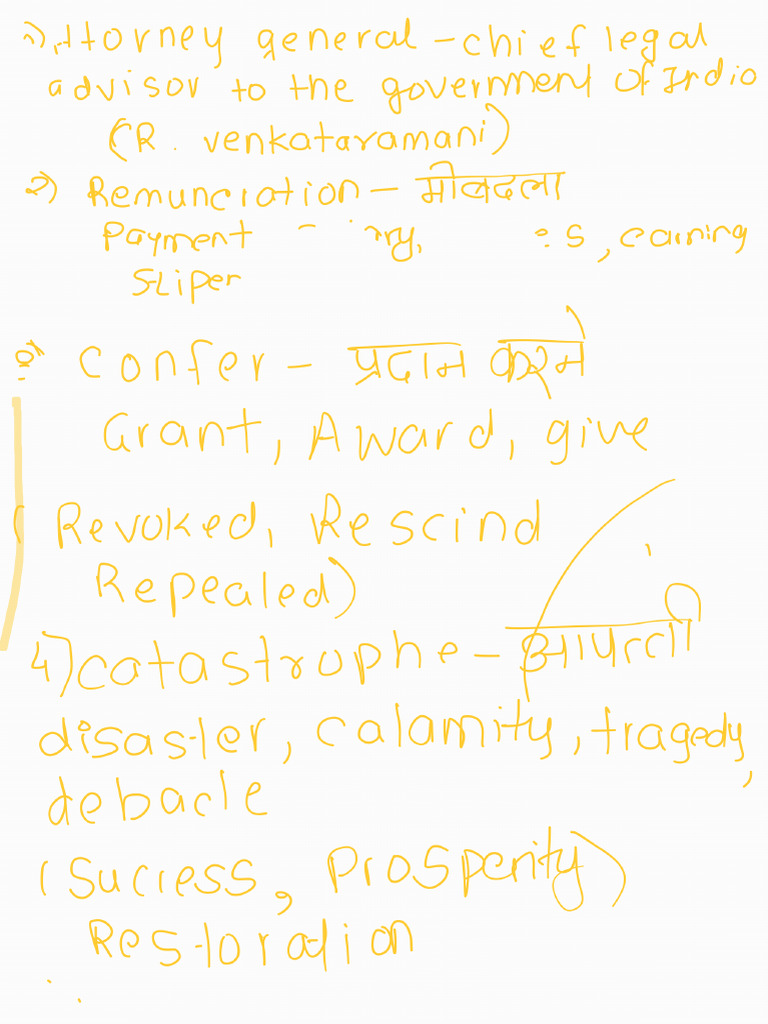 1) Attorney general - chief legal
advisor to the government of India
(R. venkataramani)
2) Remunciration - मोबदला
Payment ry, s, earning
Sliper
Confer - प्रदान करने
Grant, Award, give
(Revoked, Rescind
Repealed)
4) catastrophe - आपत्ती
disaster, calamity, tragedy,
debacle
(Sucress, Prosperity)
Restoration